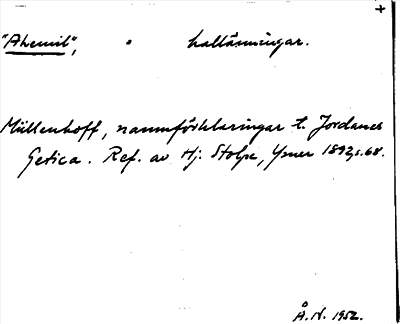 +
"Ahemil",
hallänningar.
Müllenhoff, namnförklaringar t. Jordanes
Getica. Ref. av Hj. Stolpe, Ymer 1892, s. 68.
Å. N. 1952.